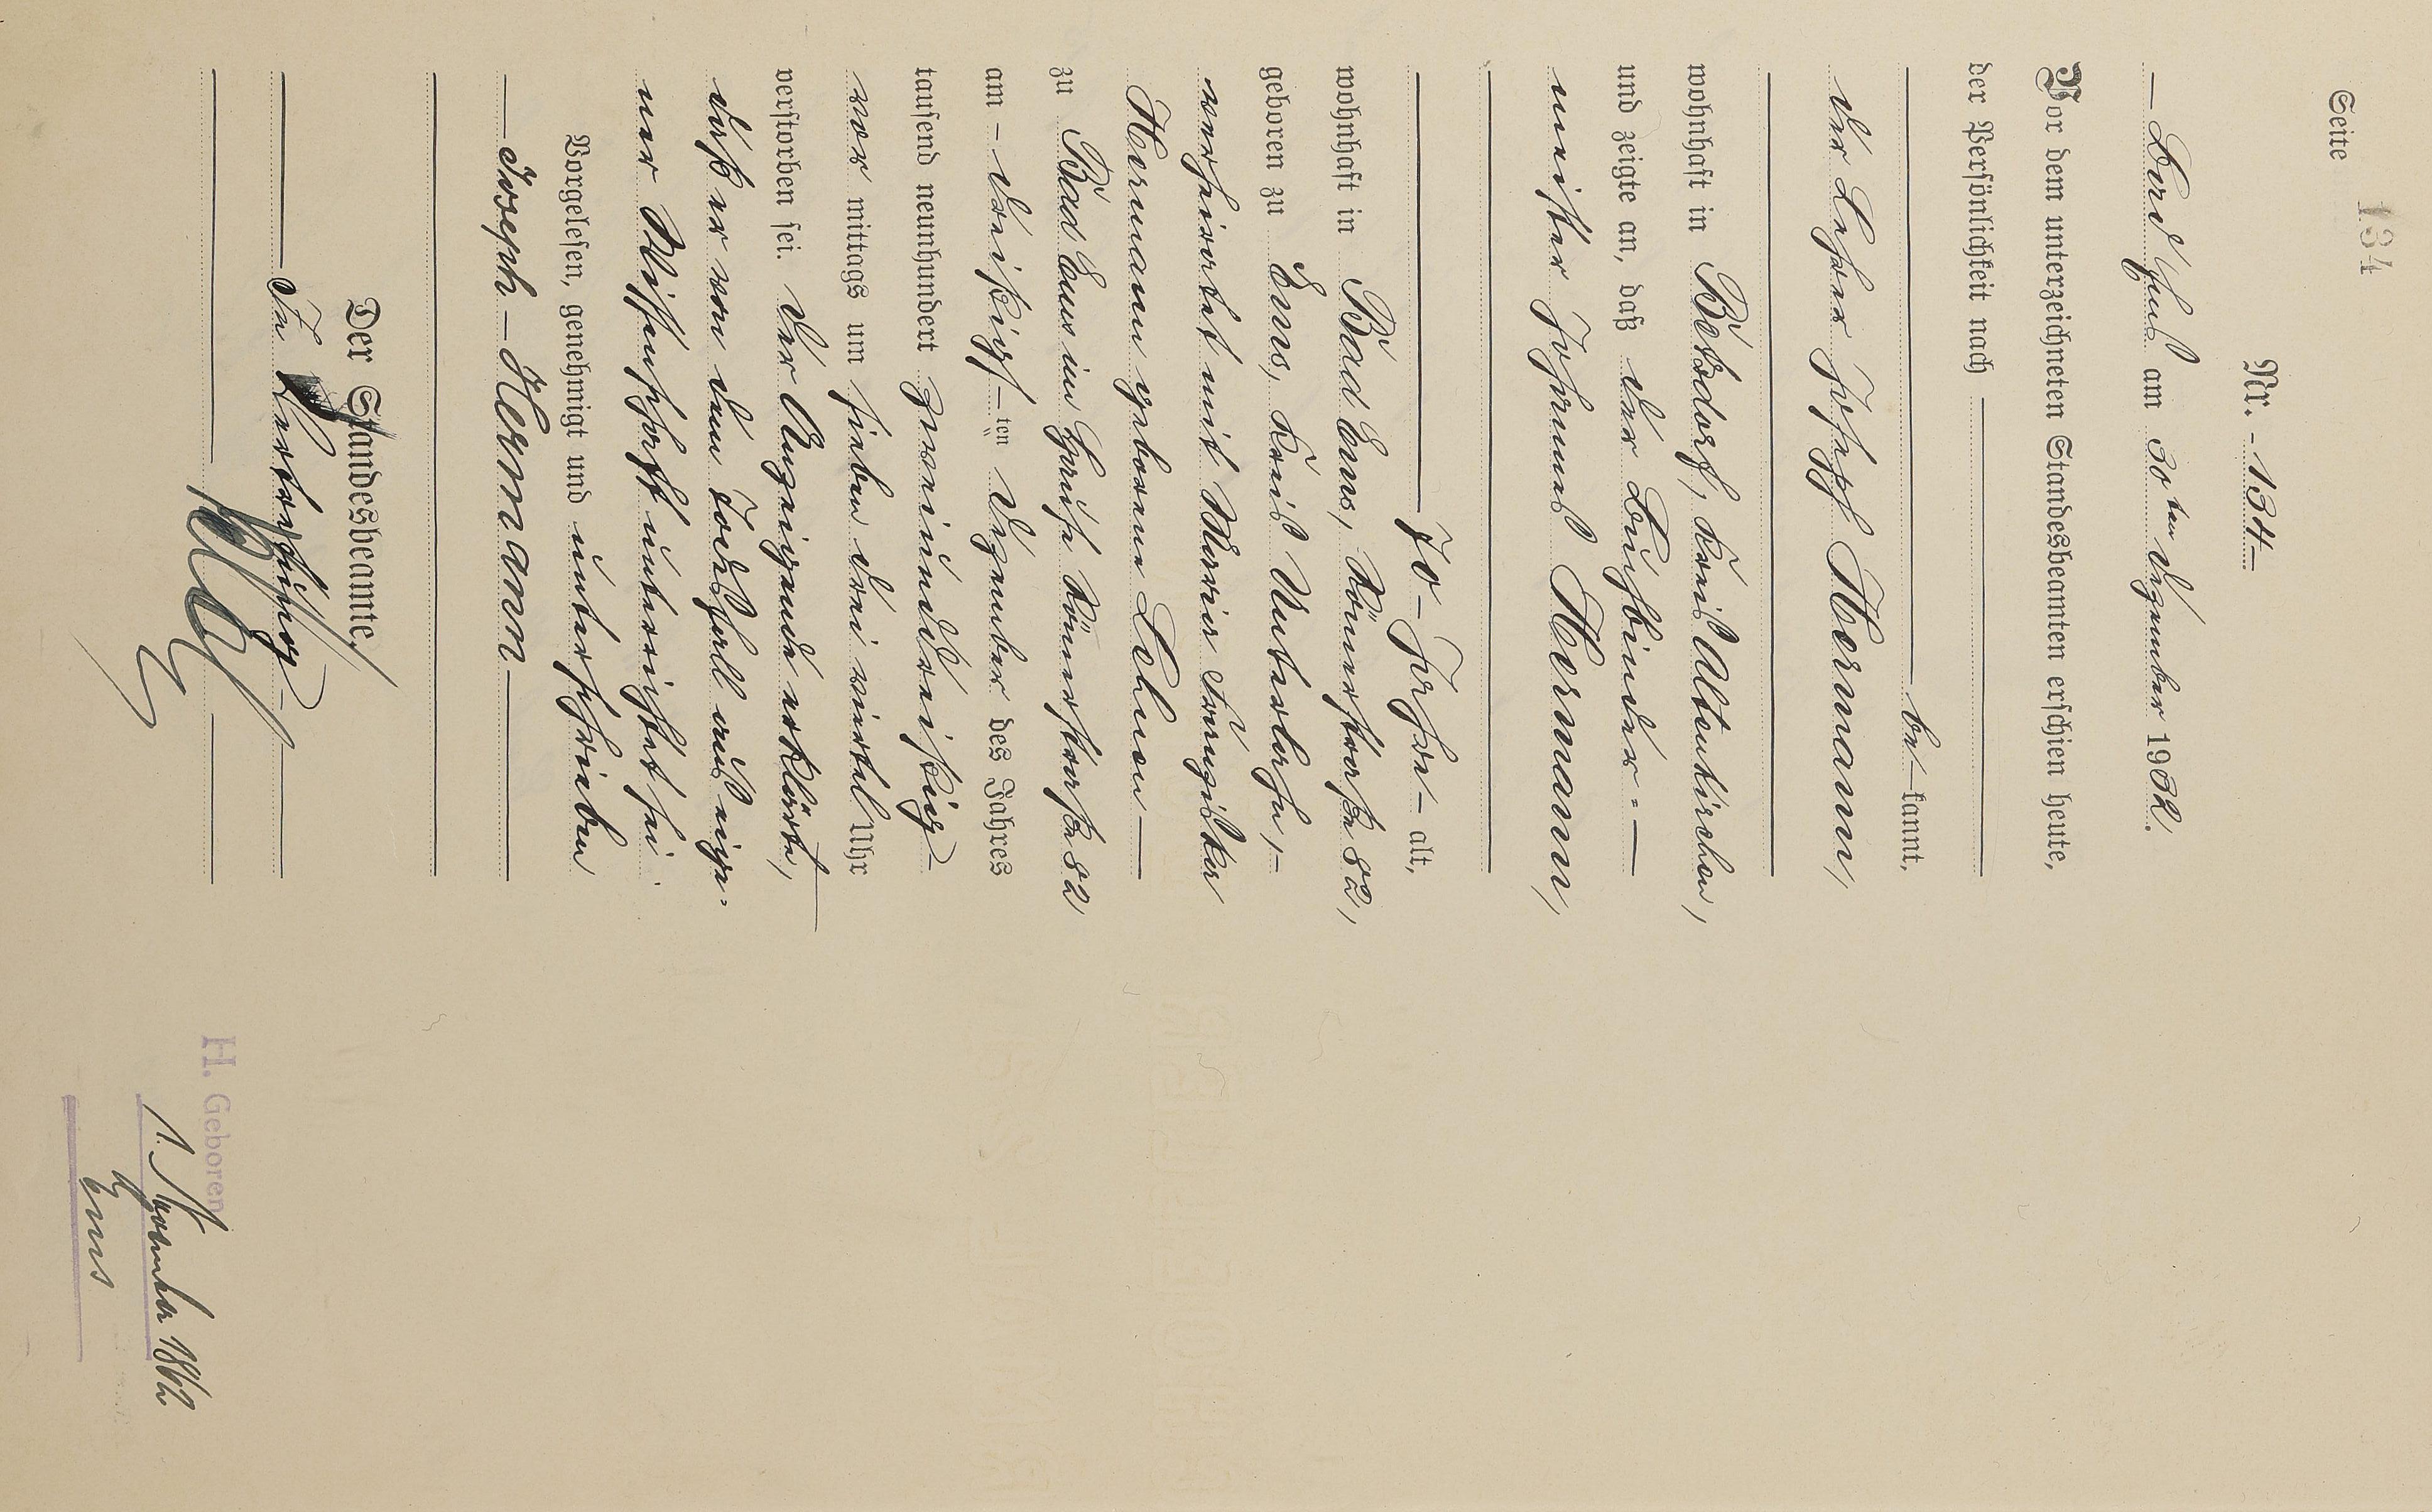 Seite 134
Nr. - 134 -
- Bad Ems am 30ten Dezember 1932.
Vor dem unterzeichneten Standesbeamten erschien heute,
der Persönlichkeit nach
be- kannt,
der Lehrer Josef Hermann,
wohnhaft in Betzdorf, Kreis Altenkirchen,
und zeigte an, daß der Buchbinder-
meister Johannes Hermann,
70 - Jahre - alt,
wohnhaft in Bad Ems, Römerstraße 82,
geboren zu Ems, Kreis Unterlahn, -
verheiratet mit Maria Franziska
Hermann geborene Lehnen -
zu Bad Ems im Hause Römerstraße 82
am - dreißigs-ten Dezember des Jahres
tausend neunhundert zweiunddreißig -
vor mittags um sieben drei viertel Uhr
verstorben sei. Der Anzeigende erklärte,
daß er von dem Todesfall aus eige-
ner Wissenschaft unterrichtet sei.
Vorgelesen, genehmigt und unterschrieben
- Joseph - Hermann -
Der Standesbeamte.
In Vertretung
H. Geboren
1. November 1862
Ems